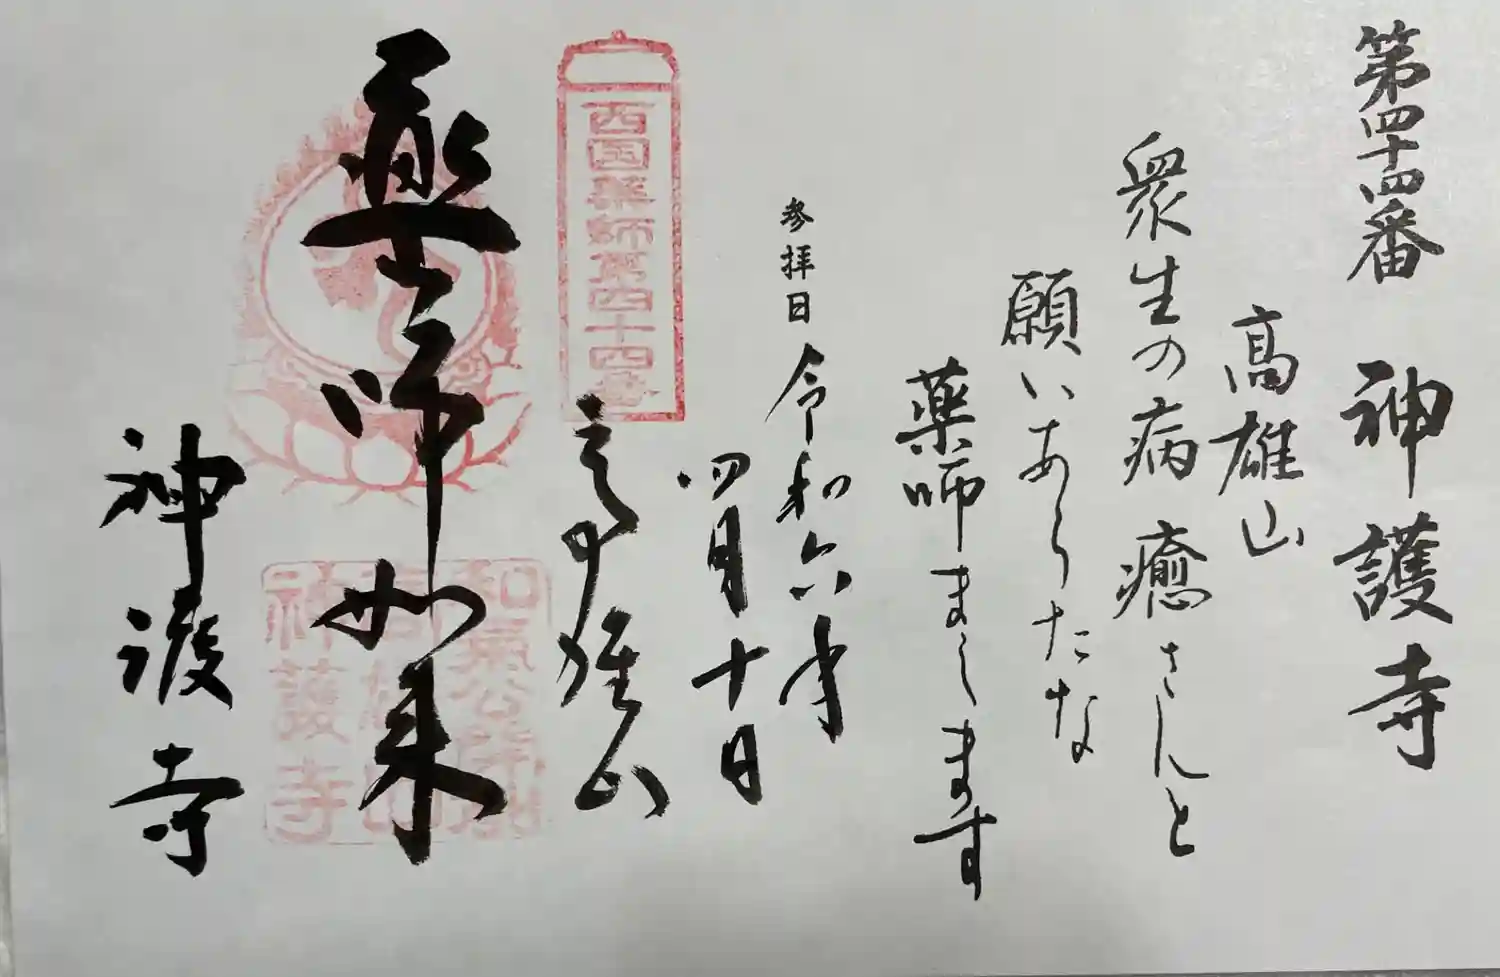 第四十四番 神護寺
高雄山
衆生の病癒さんと
願いあらたな
薬師まします
参拝日 令和六年
四月十日
西国薬師第四十四番
高雄山
薬師如来
神護寺
神護寺